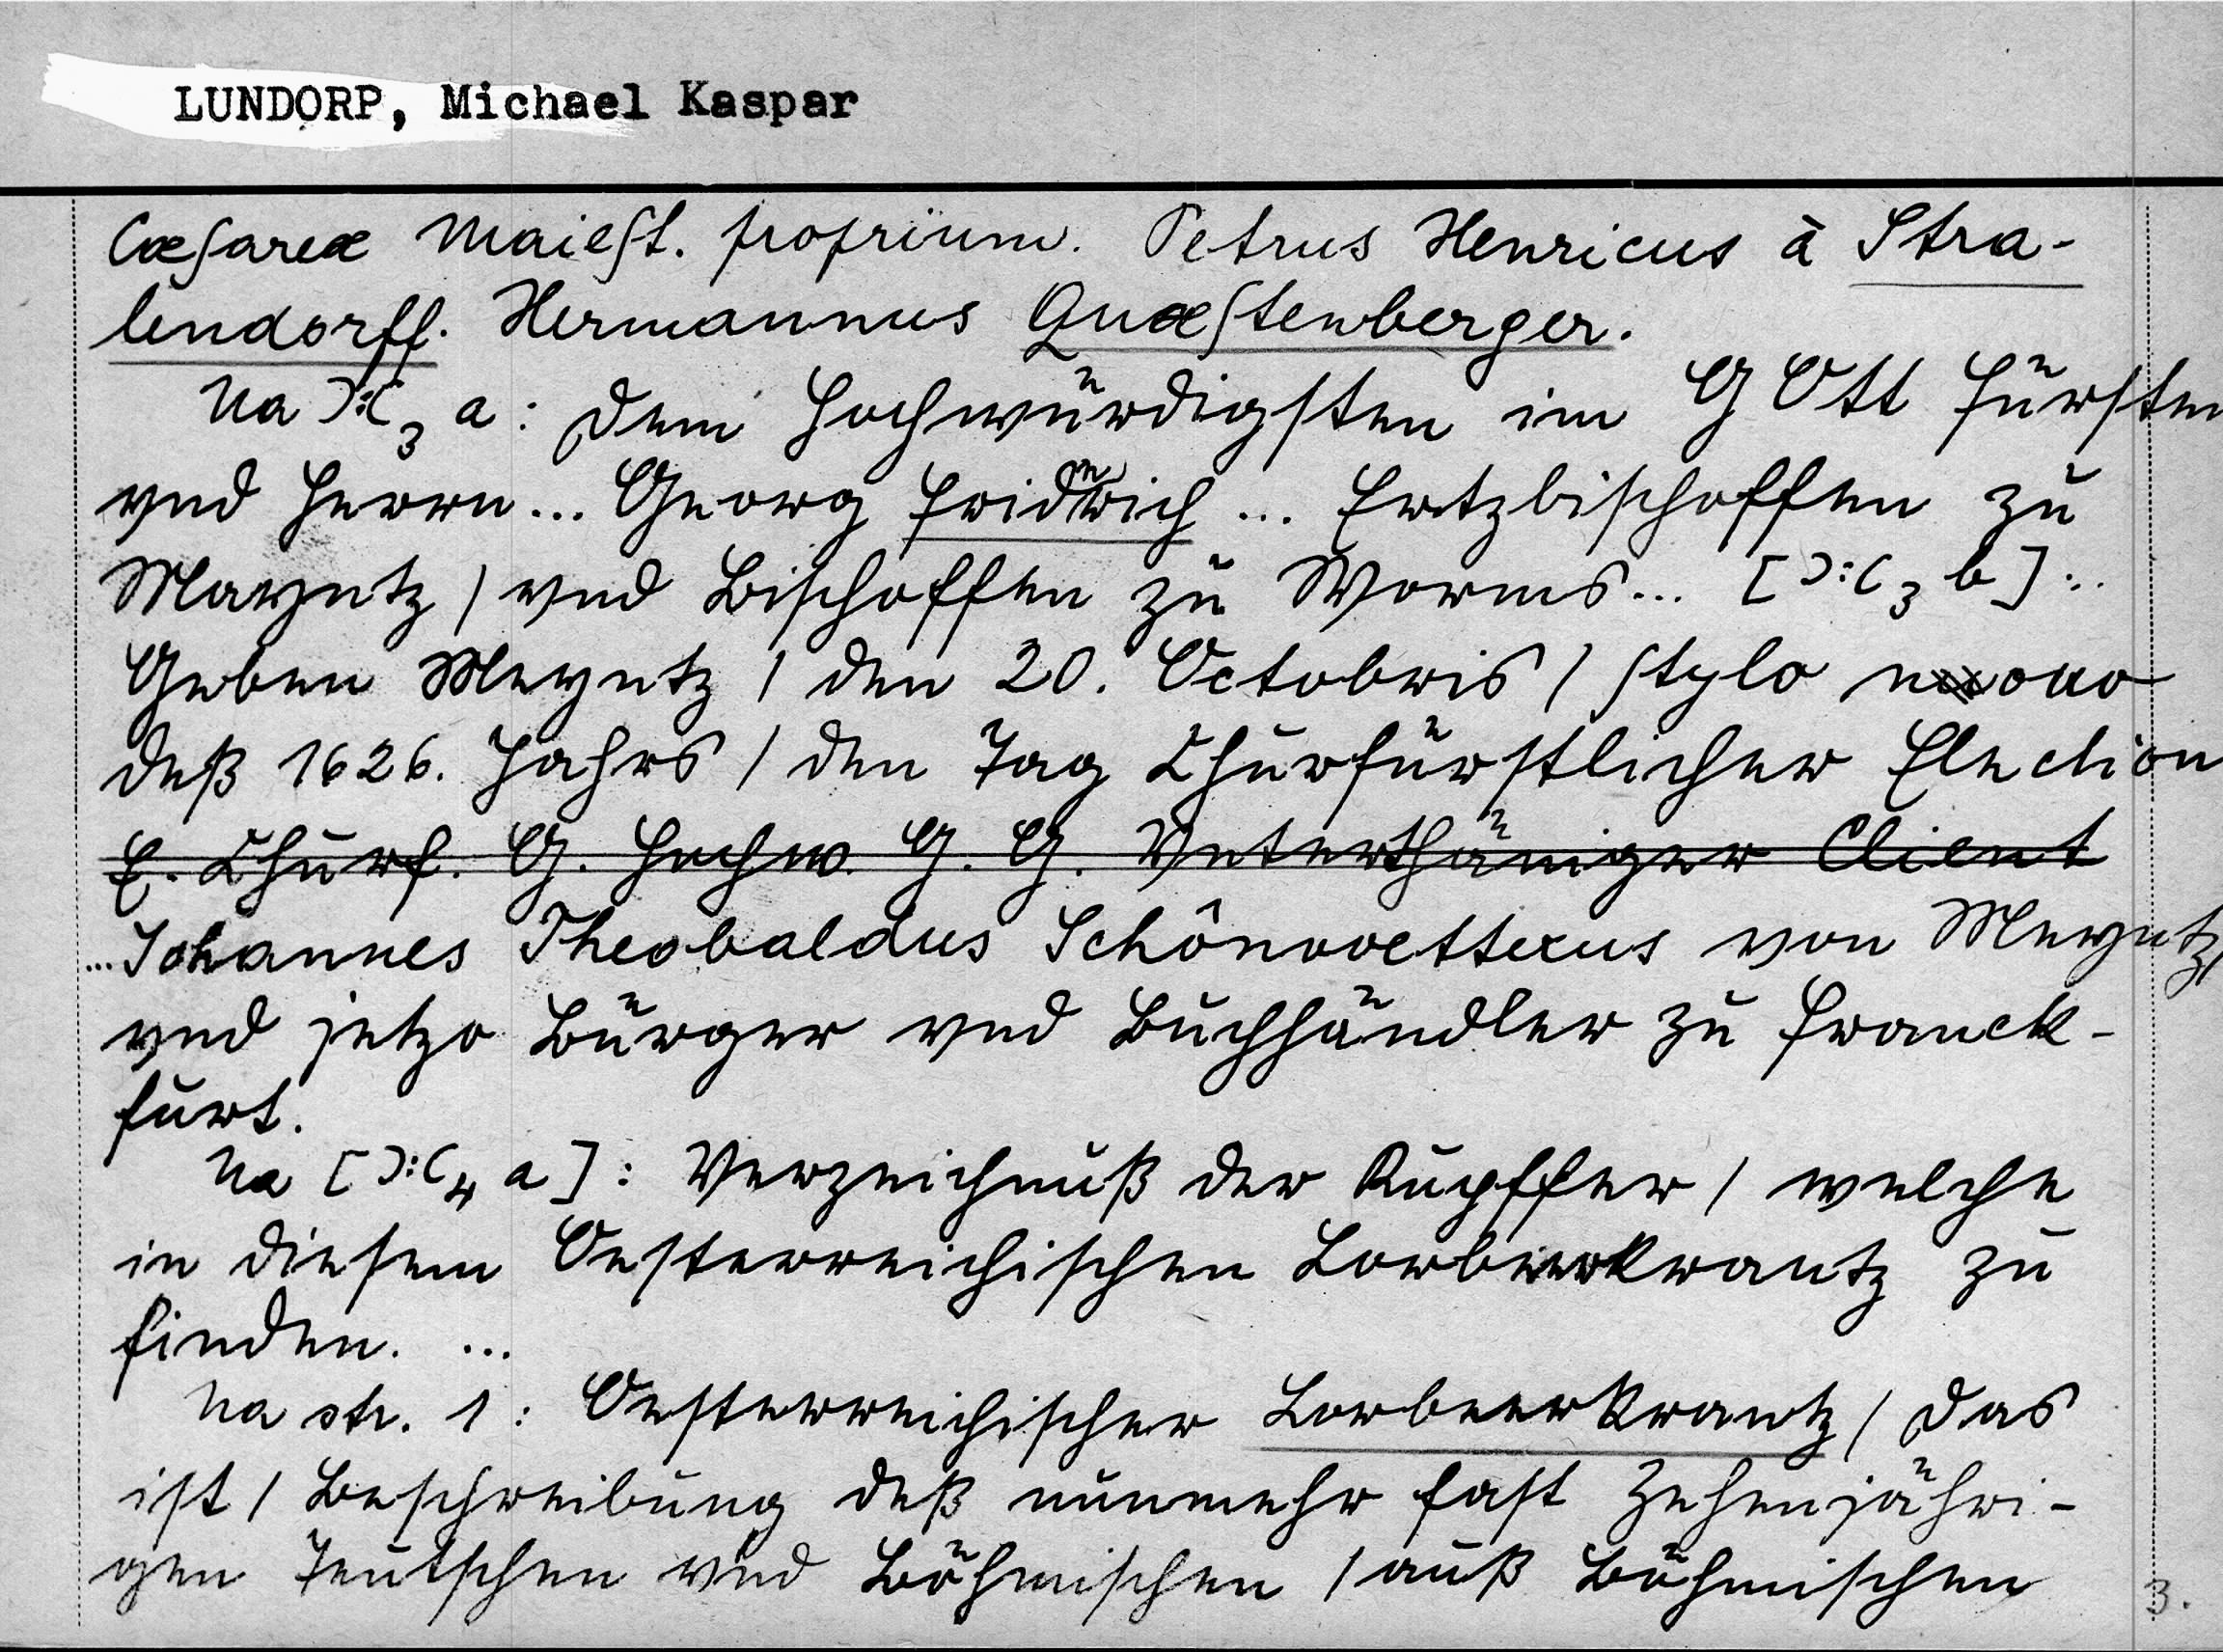 LUNDORP, Michael Kaspar
Cæſareæ Maieſt. proprium. Petrus Henricus à Stra-
lendorff. Hermannus Quæſtenberger.
Na ):( 3 a: Dem Hochwuͤrdigsten in GOtt Fuͤrsten
vnd Herrn... Georg Fridrich ... Ertzbischoffen zu
Mayntz / vnd Bischoffen zu Worms... [):( 3 b]:.
Geben Meyntz / den 20. Octobris / stylo nouo
deß 1626. Jahrs / den Tag Churfuͤrstlicher Election
E. Churf. G. Hochw. G. G. Vnterthaͤniger Client
...Johannes Theobaldus Schônvvetterus von Meyntz/
vnd jetzo Buͤrger vnd Buchhaͤndler zu Franck-
furt.
Na [):( 4 a]: Verzeichnuß der Kupffer / welche
in diesem Oesterreichischen Lorberkrantz zu
finden. ...
Na str. 1: Oesterreichischer Lorbeerkrantz / Das
ist / Beschreibung deß nunmehr fast Zehenjaͤhri-
gen Teutschen vnd Boͤhmischen / auß Boͤhmischen
3.